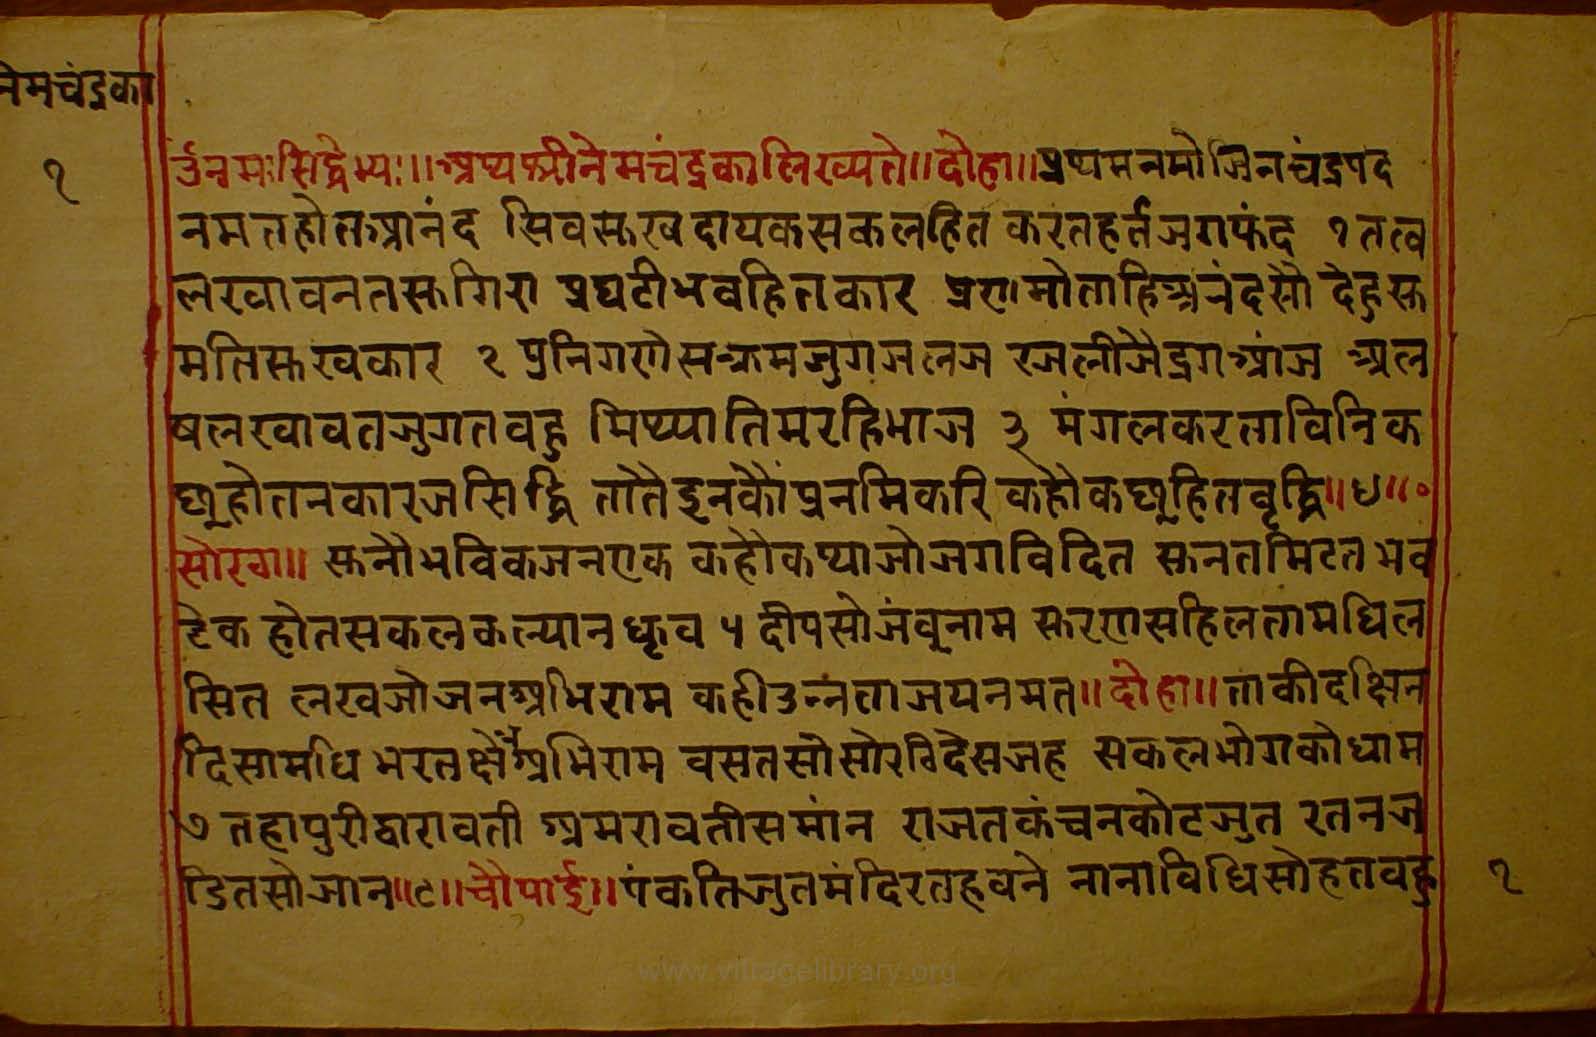 नेमचंद्रका
१
उँनमःसिद्धेभ्यः॥अथश्रीनेमचंद्रकालिख्यते॥दोहा॥प्रथमनमोजिनचंद्रपद
नमतहोतआनंद सिवसुखदायकसकलहित करतहर्तजगफंद १ तत्व
लखावनतसुगिरा प्रघटीभवहितकार प्रणमोताहिअनंदसौ देहुसु
मतिसुखकार २ पुनिगणेसक्रमजुगजलज रजलीजैद्रगआंज अल
षलखावतजुगतवहु मिथ्यातिमरहिभाज ३ मंगलकरताविनिक
छूहोतनकारजसिद्धि तातैइनकौंप्रनमिकरि कहौकछूहितवृद्धि॥४॥॰
सोरठा॥ सुनौभविकजनएक कहौकथाजोजगविदित सुनतमिटतभव
टेक होतसकलकल्यानध्रुव ५ दीपसोजंबूनाम सुरगसहिलतामधिल
सित लखजोजनअभिराम कहीउन्नताजयनमत॥दोहा॥ताकीदक्षिन
दिसामधि भरतक्षेत्रअभिराम वसतसोसोरठिदेसजह सकलभोगकोधाम
७ तहापुरीद्वारावती अमरावतीसमांन राजतकंचनकोटजुत रतनज
डितसोजान॥८॥चौपाई॥पंकतिजुतमंदिरतहवने नानाविधिसोहतवहु
१
www.vitragelibrary.org